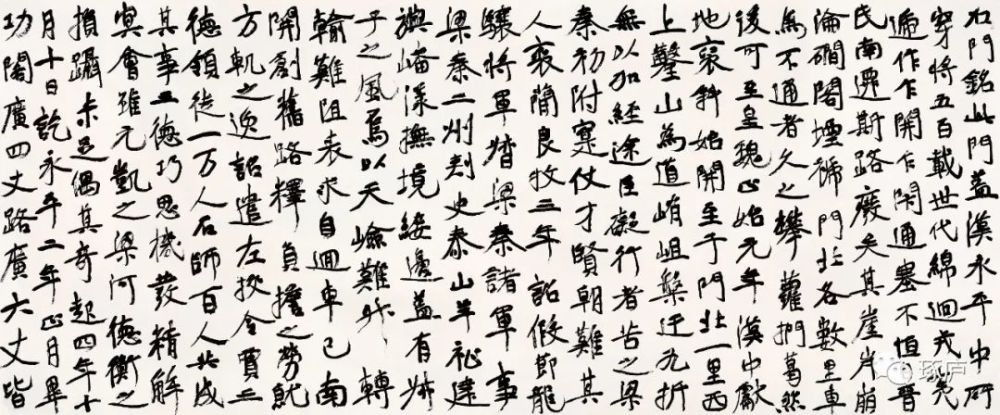 石門銘此門蓋漢永平中所
穿將五百載世代綿迴戎夷
遞作乍開乍閉通塞不恒晉
氏南遷斯路廢矣其崖岸崩
淪磵閣堙褫門北各數里車
馬不通者久之攀蘿捫葛然
後可至皇魏正始元年漢中獻
地褒斜始開至于門北一里西
上鑿山為道峭岨槃迂九折
無以加經途巨礙行者苦之梁
秦初附寔仗才賢朝難其
人褒簡良牧三年詔假節龍
驤將軍督梁秦諸軍事
梁秦二州刺史泰山羊祉建
旟嶓漾撫境綏邊蓋有叔
子之風焉以天嶮難升轉
輸難阻表求自迴車已南
開創舊路釋負擔之勞就
方軌之逸詔遣左校令賈三
德領徒一万人石師百人共成
其事三德巧思機發精解
冥會雖元凱之梁河德衡之
損躡未足偶其奇起四年十
月十日訖永平二年正月畢
功閣廣四丈路廣六丈皆
琢庐